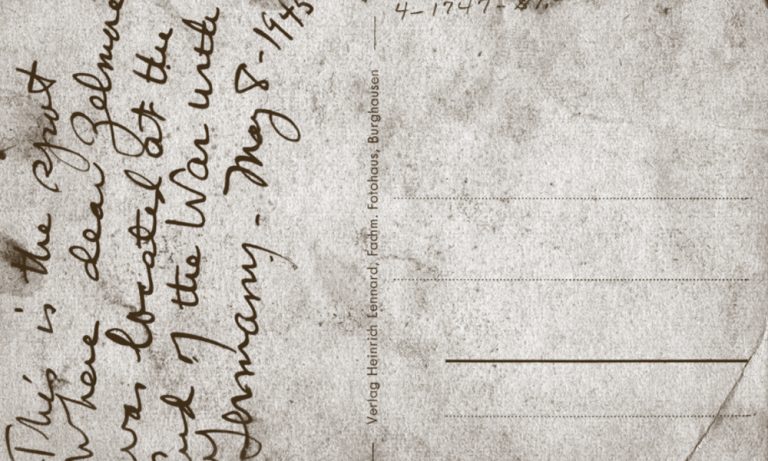 This is the spot
where dear Zelmore
was located at the
end of the War with
Germany - May 8-1945
Verlag Heinrich Lennard, Fachm. Fotohaus, Burghausen
4-1747-